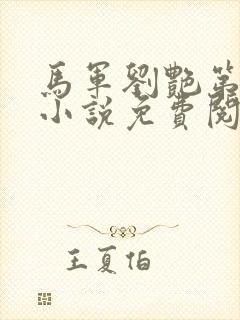 馬軍劉艷第
小說免費閱
王夏伯